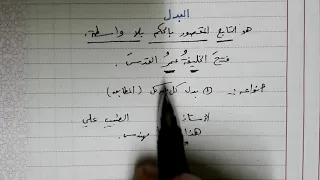 البدل
هو التابع المقصور بالحكم بلا واسطة.
فتحَ الخليفةُ عمرُ القدسَ.
انواعه :- ① بدل كل كل (المطابق)
الأستاذ الطبيب علي
هذا مهندس.